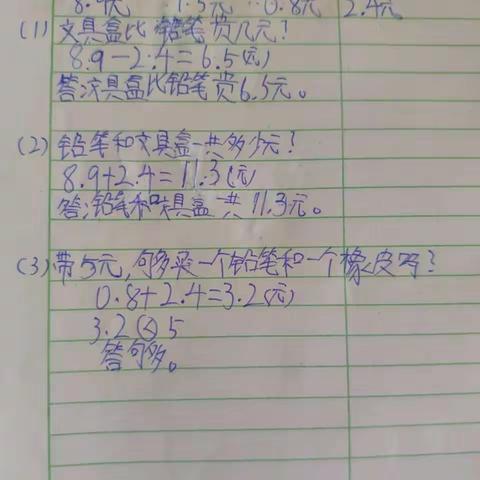 8.9元 1.5元 0.8元 2.4元
(1) 文具盒比铅笔贵几元?
8.9-2.4=6.5(元)
答:文具盒比铅笔贵6.5元。
(2) 铅笔和文具盒一共多少元?
8.9+2.4=11.3(元)
答:铅笔和文具盒一共11.3元。
(3) 带5元,够买一个铅笔和一个橡皮吗?
0.8+2.4=3.2(元)
3.2<5
答够。